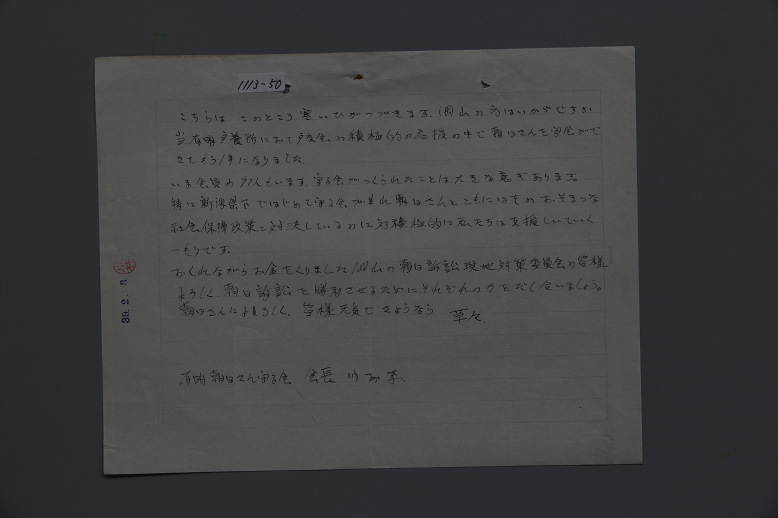 1113-50
こちらは このところ 寒いひがつづきます、岡山の方はいかがですか
当有明療養所において 患者会の積極的の応援の中で 朝日さんを守る会がで
きてもう1年になりました
いま会員が 91人もいます、守る会がつくられたことは大きな意ぎあります
特に新潟県下ではじめて守る会が生れ朝日さんとともに
社会保障政策と対決しているのに対積極的に私たちは支援していく
つもりです。
おくれながらお金をくりました 岡山の朝日訴訟現地対策委員会の皆様
よろしく 朝日訴訟を勝利させるためにそれぞれの力をだし合いましょう。
朝日さんによろしく、皆様元気で さようなら 草々
有明朝日さん守る会 会長
39.2.3